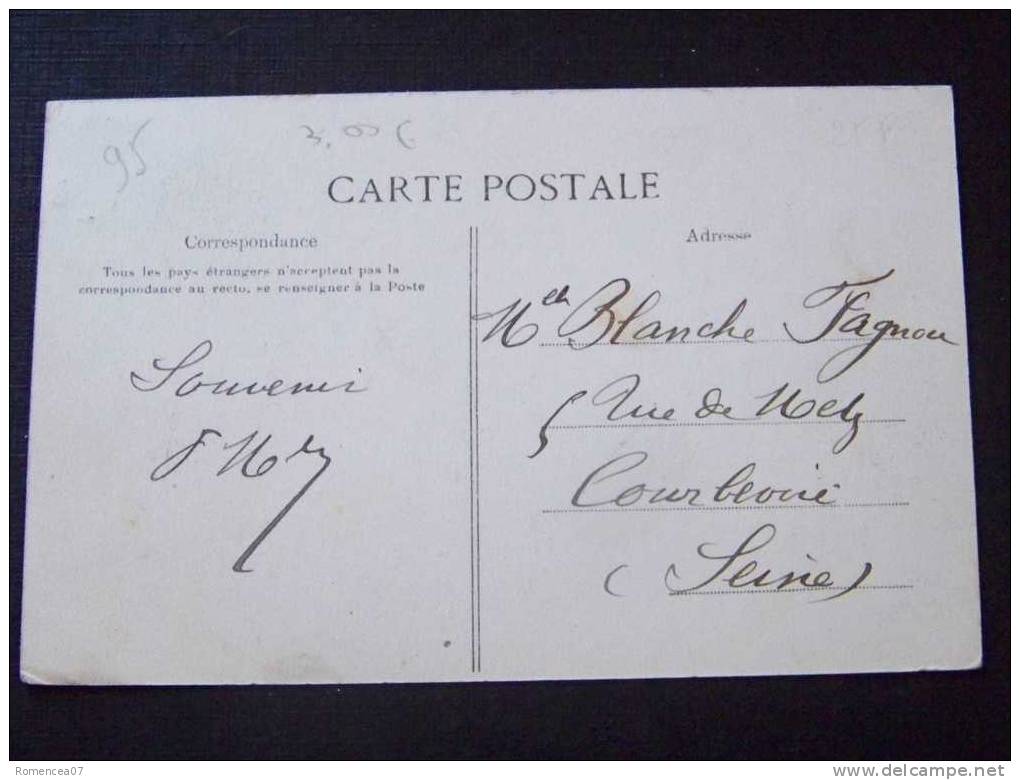 95
3,00 €
CARTE POSTALE
Correspondance
Tous les pays étrangers n'acceptent pas la
correspondance au recto, se renseigner à la Poste
Souvenir
Adresse
Melle Blanche Fagnou
5 Rue de Metz
Courbevoie
(Seine)
Romencea07
delcampe.net